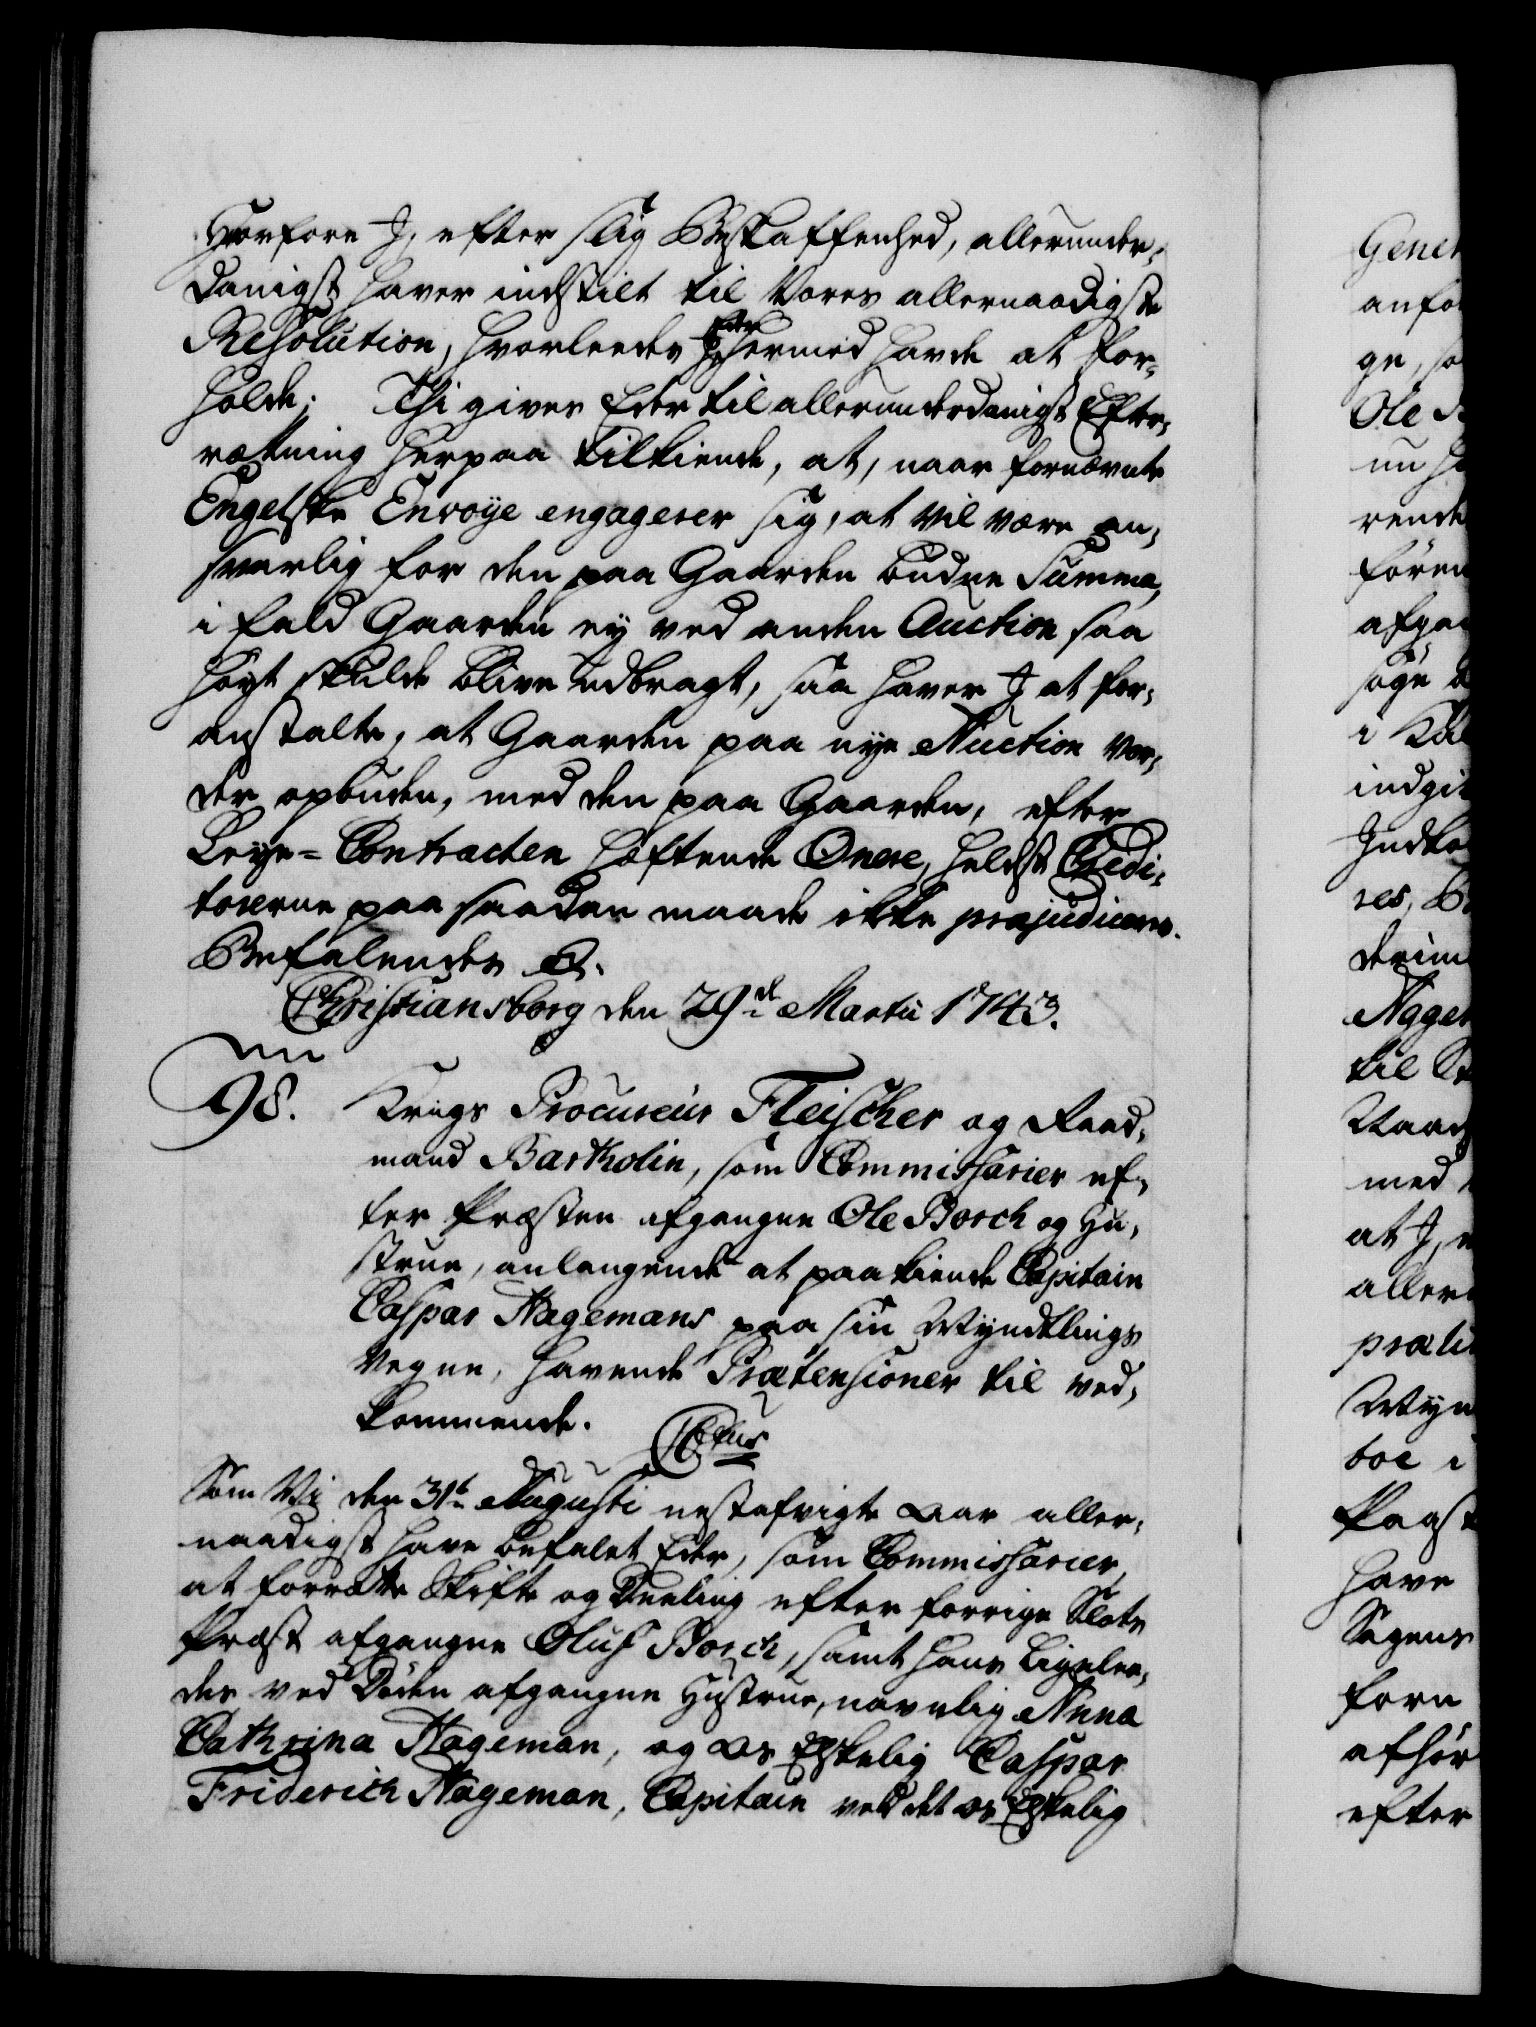 Hvorfore I, efter slig Beskaffenhed, allerunder,
danigst haver indstilt til Vores allernaadigste
Resolution, hvorleedes Eder hermed havde at for,
holde. Thi gives Eder til allerunderdanigst Efter,
rætning herpaa tilkiende, at, naar fornævnte
Engelske Envoÿe engagerer sig, at vil være an,
svarlig for den paa Gaarden budne Summa,
i fald Gaarden ey ved anden Auction saa
høyt skulde blive udbragt, saa haver I at for,
anstalte, at Gaarden paa nye Auction vor,
der opbuden, med den paa Gaarden, efter
Leye-Contracten hæftende Onere, heldst Credi,
torerne paa saadan maade ikke præjudiceres.
Befalendes &.
Christiansborg den 29de Martii 1743.
98. Krigs Procureur Fleischer og Raad,
mand Bartholin, som Commissarier ef,
ter Præsten afgangne Ole Borch og Hu,
strue, anlangende at paakiende Capitain
Caspar Hagemans paa sin Myndtlings
Vegne, havende Prætensioner til ved,
kommende.
Som Vi den 31te Augusti nestafvigte Aar aller,
naadigst have befalet Eder, som Commissarier,
at forrætte Skifte og Deeling efter forrige Slots
Præst afgangne Oluf Borch, samt hans ligelee,
des ved Døden afgangne Hustrue, navnlig Anna
Cathrina Hageman, og Os Elskelig Caspar
Friderich Hageman, Capitain ved det Os Elskelig
Gener
anfo
ge, so
Ole B
nu h
rende
fören
afga
søge
i Kiø
indgi
Indko
res, B
derim
Agger
til St
Raad
med
at I, e
aller
præt
Myn
boe i
Paast
have
Sagens
forn
afhør
efter